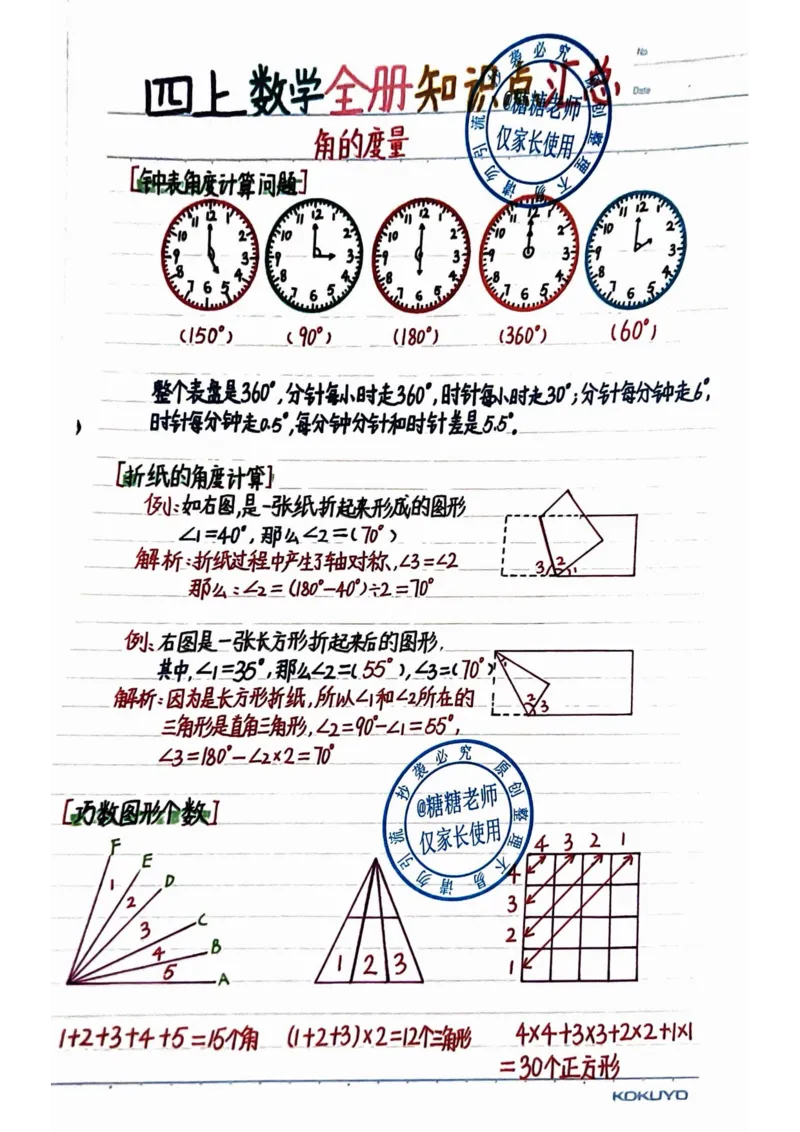 No
Date
四上数学全册知识点汇总
角的度量
[钟表角度计算问题]
(150°) (90°) (180°) (360°) (60°)
整个表盘是360°,分针每小时走360°,时针每小时走30°;分针每分钟走6°,
时针每分钟走0.5°,每分钟分针和时针差是5.5°。
[折纸的角度计算]
例:如右图,是一张纸折起来形成的图形
∠1=40°,那么∠2=(70°)
解析:折纸过程中产生了轴对称,∠3=∠2
那么:∠2=(180°-40°)÷2=70°
3 2 1
例:右图是一张长方形折起来后的图形,
其中,∠1=35°,那么∠2=(55°),∠3=(70°)
解析:因为是长方形折纸,所以∠1和∠2所在的
三角形是直角三角形,∠2=90°-∠1=55°,
∠3=180°-∠2×2=70°
1 2 3
[巧数图形个数]
F E D C B A
1 2 3 4 5
1 2 3
4 3 2 1
4
3
2
1
1+2+3+4+5=15个角 (1+2+3)×2=12个三角形 4×4+3×3+2×2+1×1
=30个正方形
KOKUYO
@糖糖老师
仅家长使用
原创整理不易 请勿引流抄袭必究
@糖糖老师
仅家长使用
原创整理不易 请勿引流抄袭必究